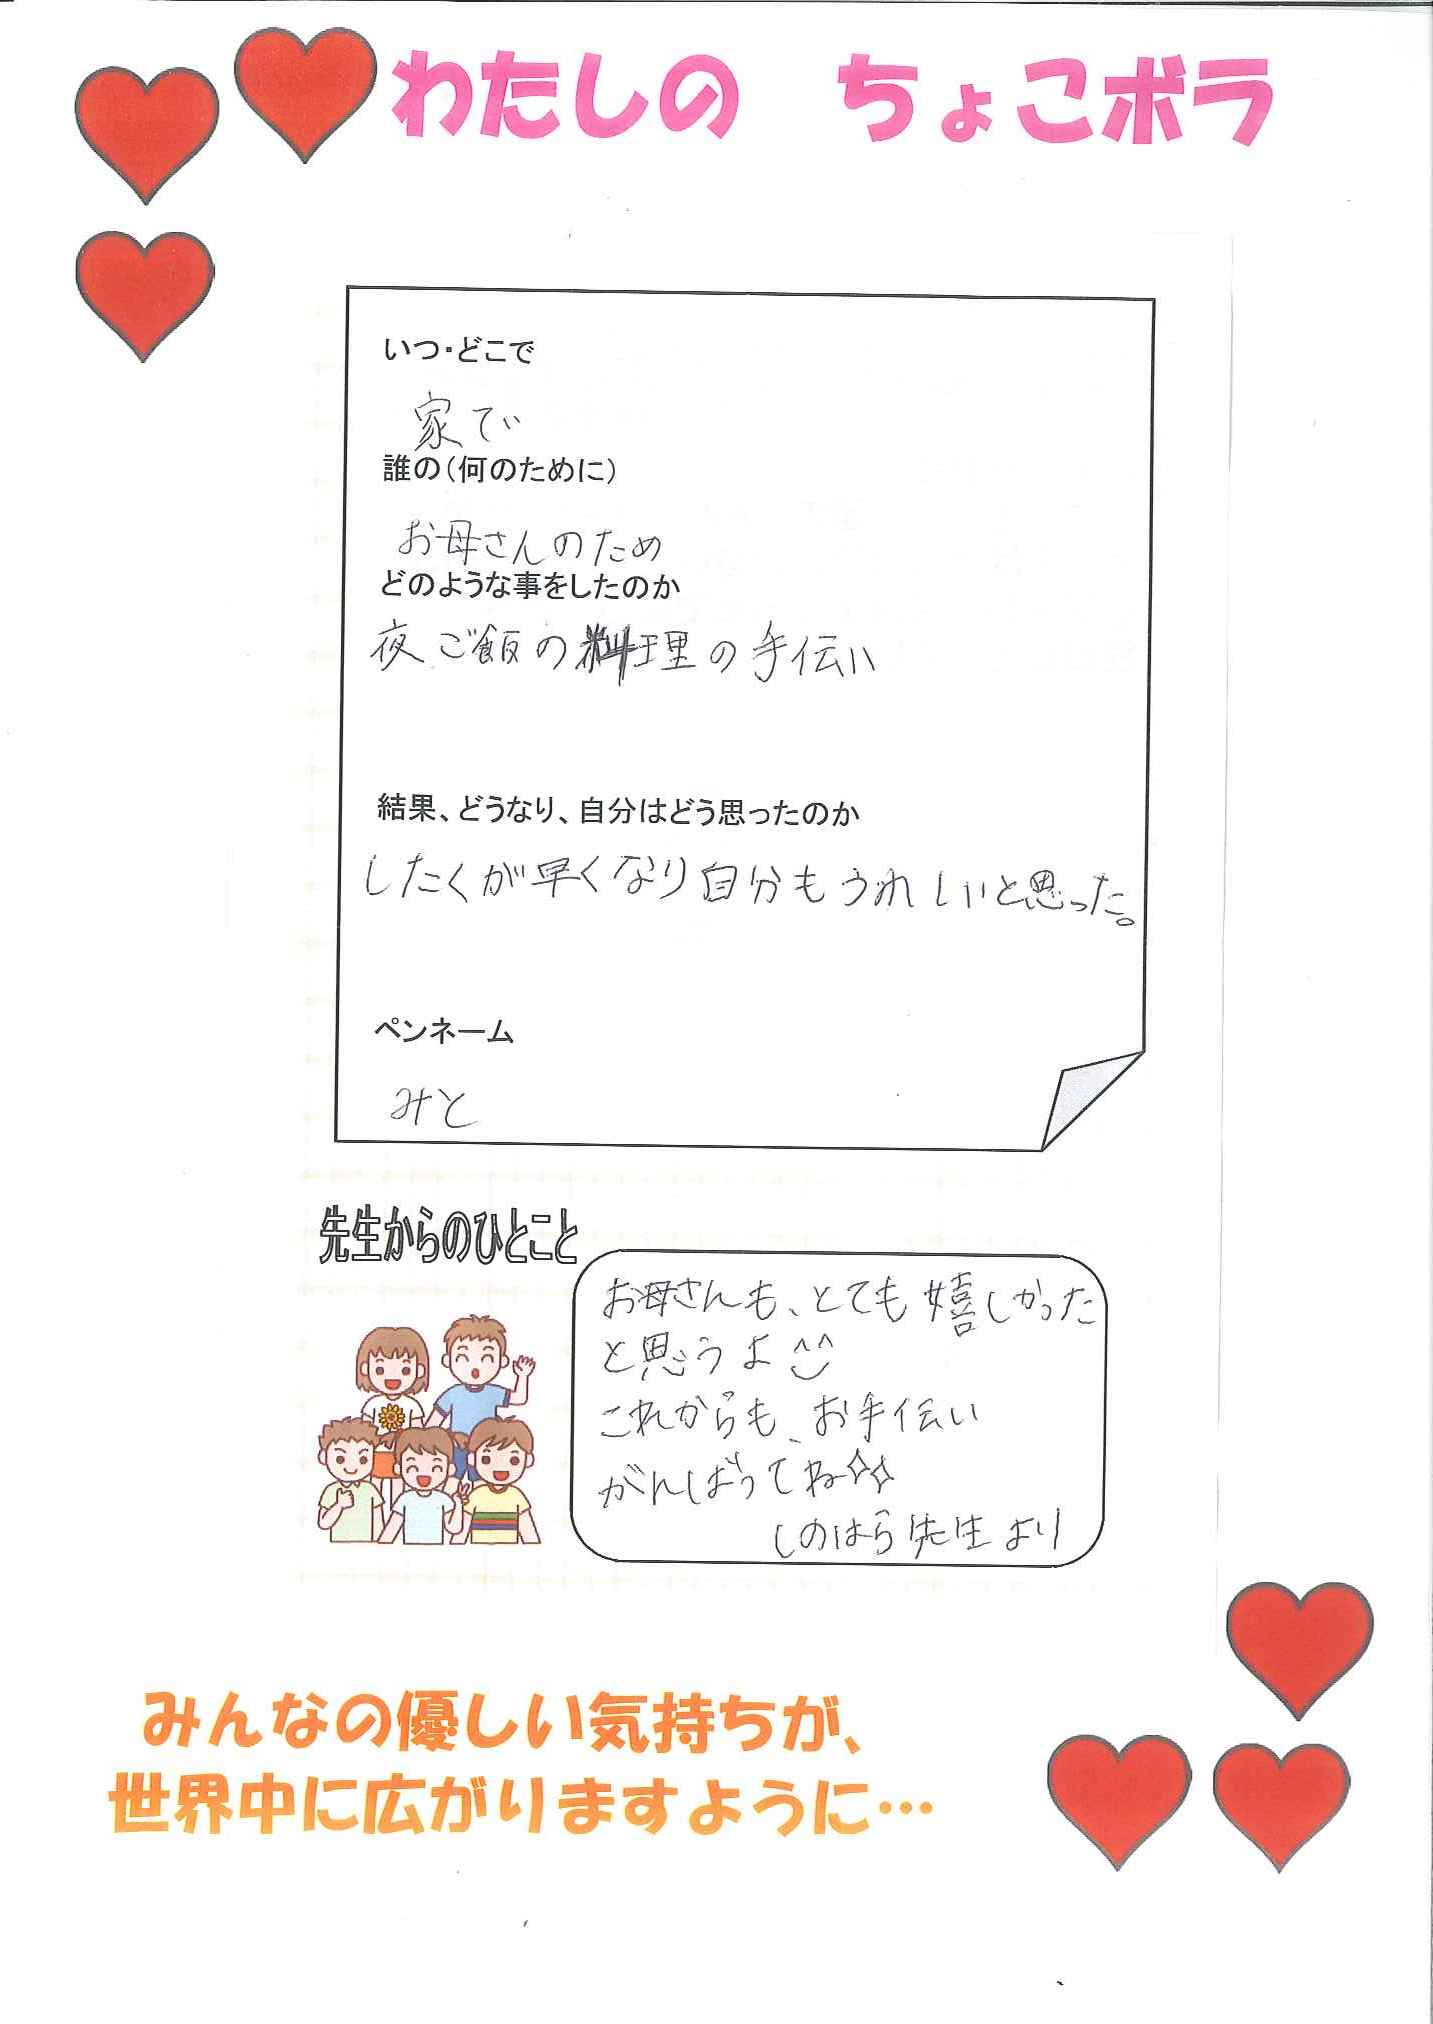 わたしの　ちょこボラ
いつ・どこで
家で
誰の（何のために）
お母さんのため
どのような事をしたのか
夜ご飯の料理の手伝い
結果、どうなり、自分はどう思ったのか
したくが早くなり自分もうれしいと思った。
ペンネーム
みと
先生からのひとこと
お母さんも、とても嬉しかった
と思うよ^^
これからも、お手伝い
がんばってね☆☆
しのはら先生より
みんなの優しい気持ちが、
世界中に広がりますように…